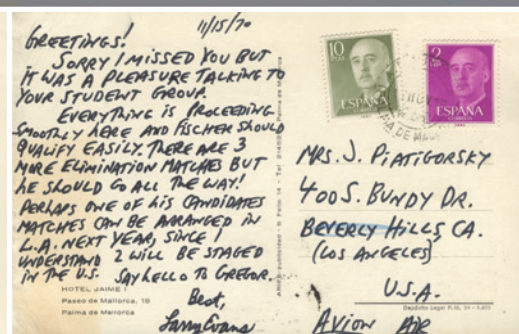 11/15/70
GREETINGS!
SORRY I MISSED YOU BUT
IT WAS A PLEASURE TALKING TO
YOUR STUDENT GROUP.
EVERYTHING IS PROCEEDING
SMOOTHLY HERE AND FISCHER SHOULD
QUALIFY EASILY. THERE ARE 3
MORE ELIMINATION MATCHES BUT
HE SHOULD GO ALL THE WAY!
PERHAPS ONE OF HIS CANDIDATES
MATCHES CAN BE ARRANGED IN
L.A. NEXT YEAR, SINCE I
UNDERSTAND 2 WILL BE STAGED
IN THE U.S. SAY HELLO TO GREGOR.
Best,
Larry Evans
HOTEL JAIME I
Paseo de Mallorca, 18
Palma de Mallorca
Palma de Mallorca
10
PTAS
ESPAÑA
CORREOS
2
ESPAÑA
CORREOS
MRS. J. PIATIGORSKY
400 S. BUNDY DR.
BEVERLY HILLS, CA.
(LOS ANGELES)
U.S.A.
Depósito Legal P.M.
AVION AIR